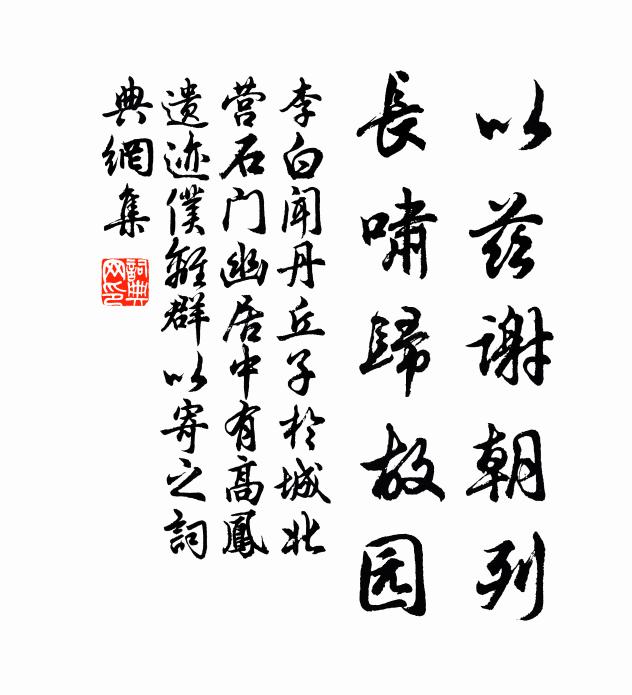 以兹謝朝列
長嘯歸故园
李白闻丹丘子於城北
营石门幽居中有高鳳
遗迹僕離群以寄之詞
典網集
詞典网印